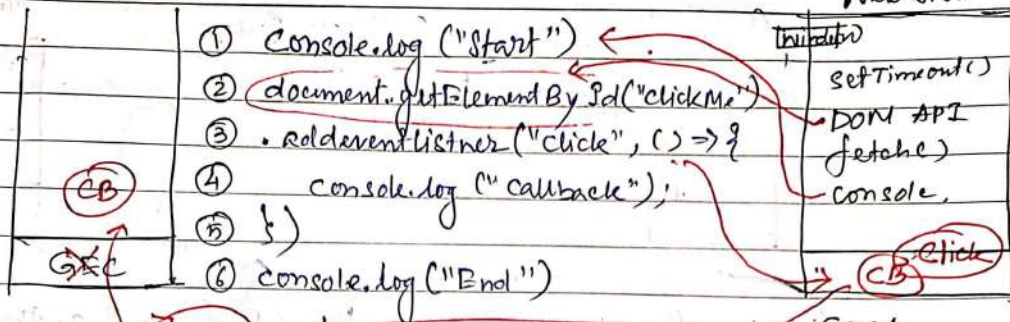 ① Console.log ("Start")
② document.getElementById("clickMe")
③ .addeventlistner("click", () => {
④ console.log ("callback");
⑤ })
⑥ console.log ("End")
CB
GEC
window
setTimeout()
DOM API
fetch()
console.
Click
CB